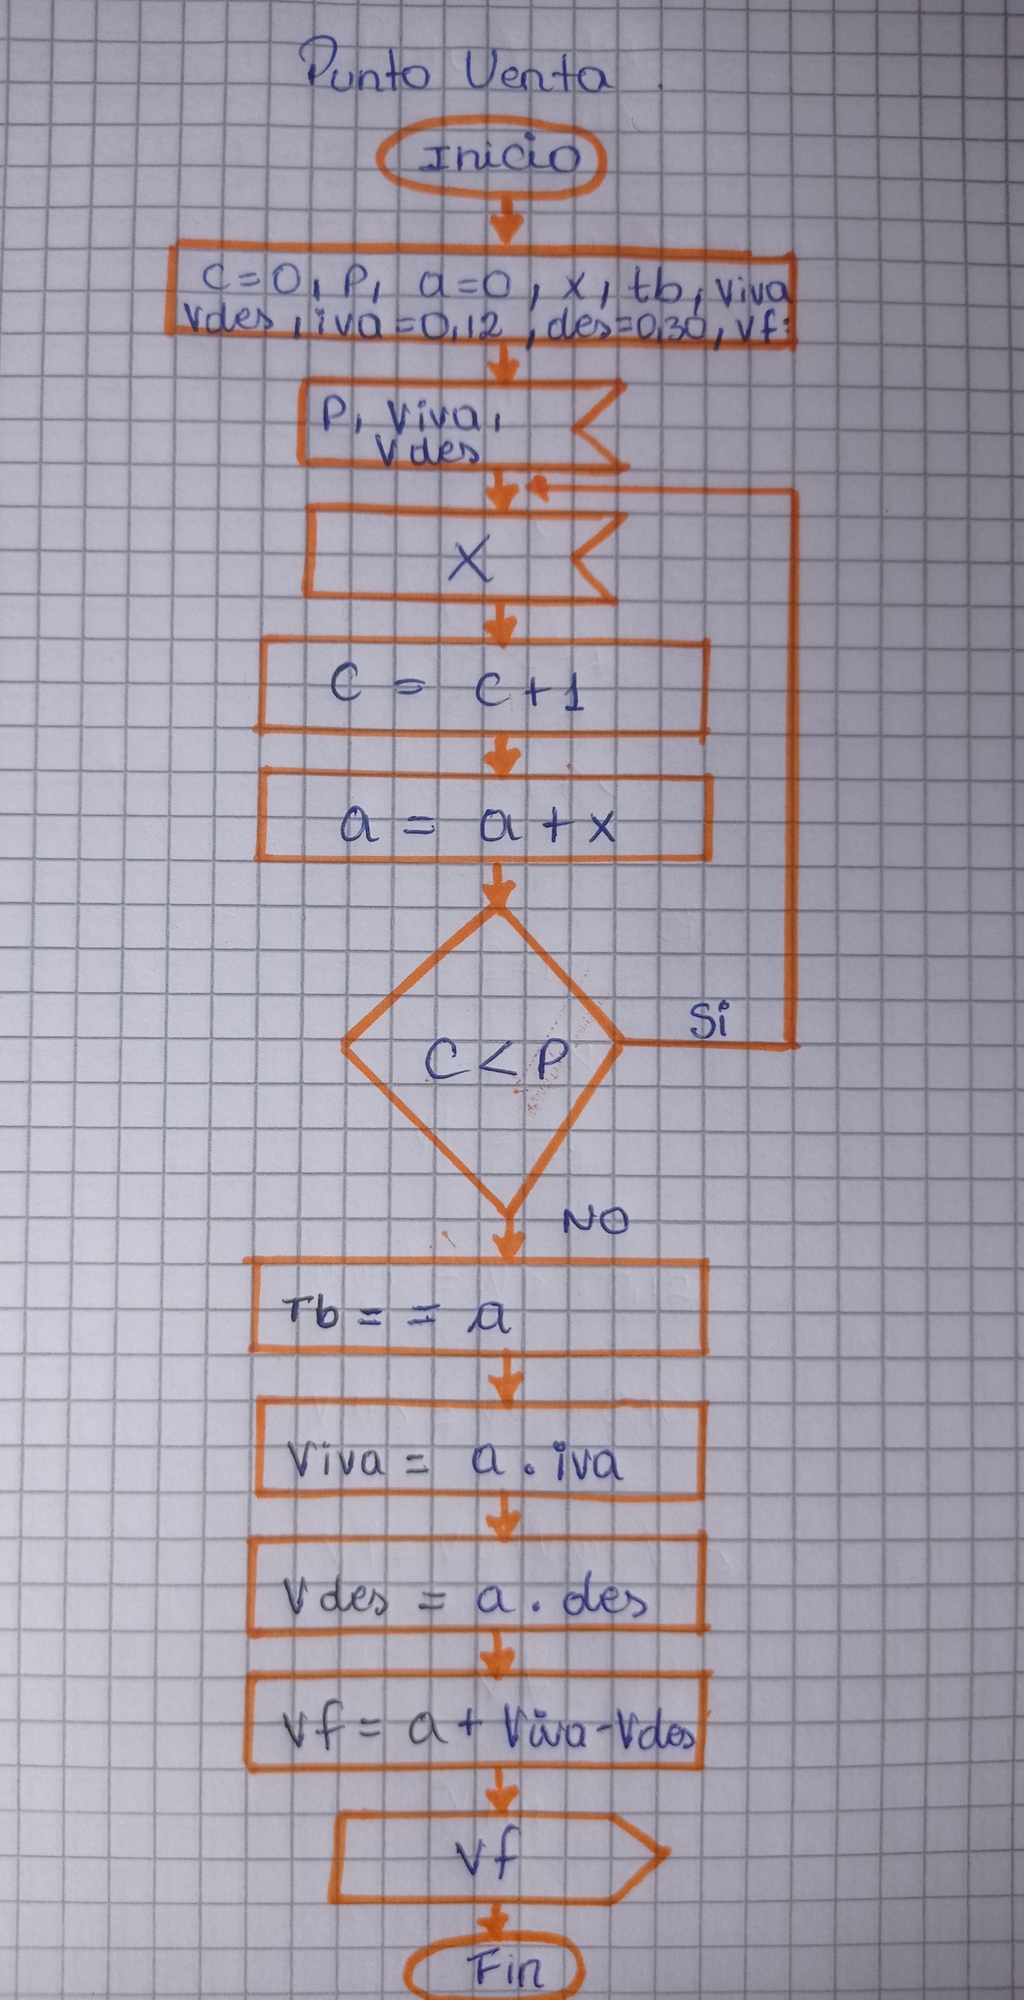 Punto Venta.
Inicio
c=0, p, a=0, x, tb, viva
vdes, iva=0,12, des=0,30, vf;
P, Viva,
Vdes
X
C = C+1
a = a+x
C < P
Si
NO
Tb = = a
Viva = a . iva
Vdes = a . des
Vf = a + Viva - Vdes
Vf
Fin